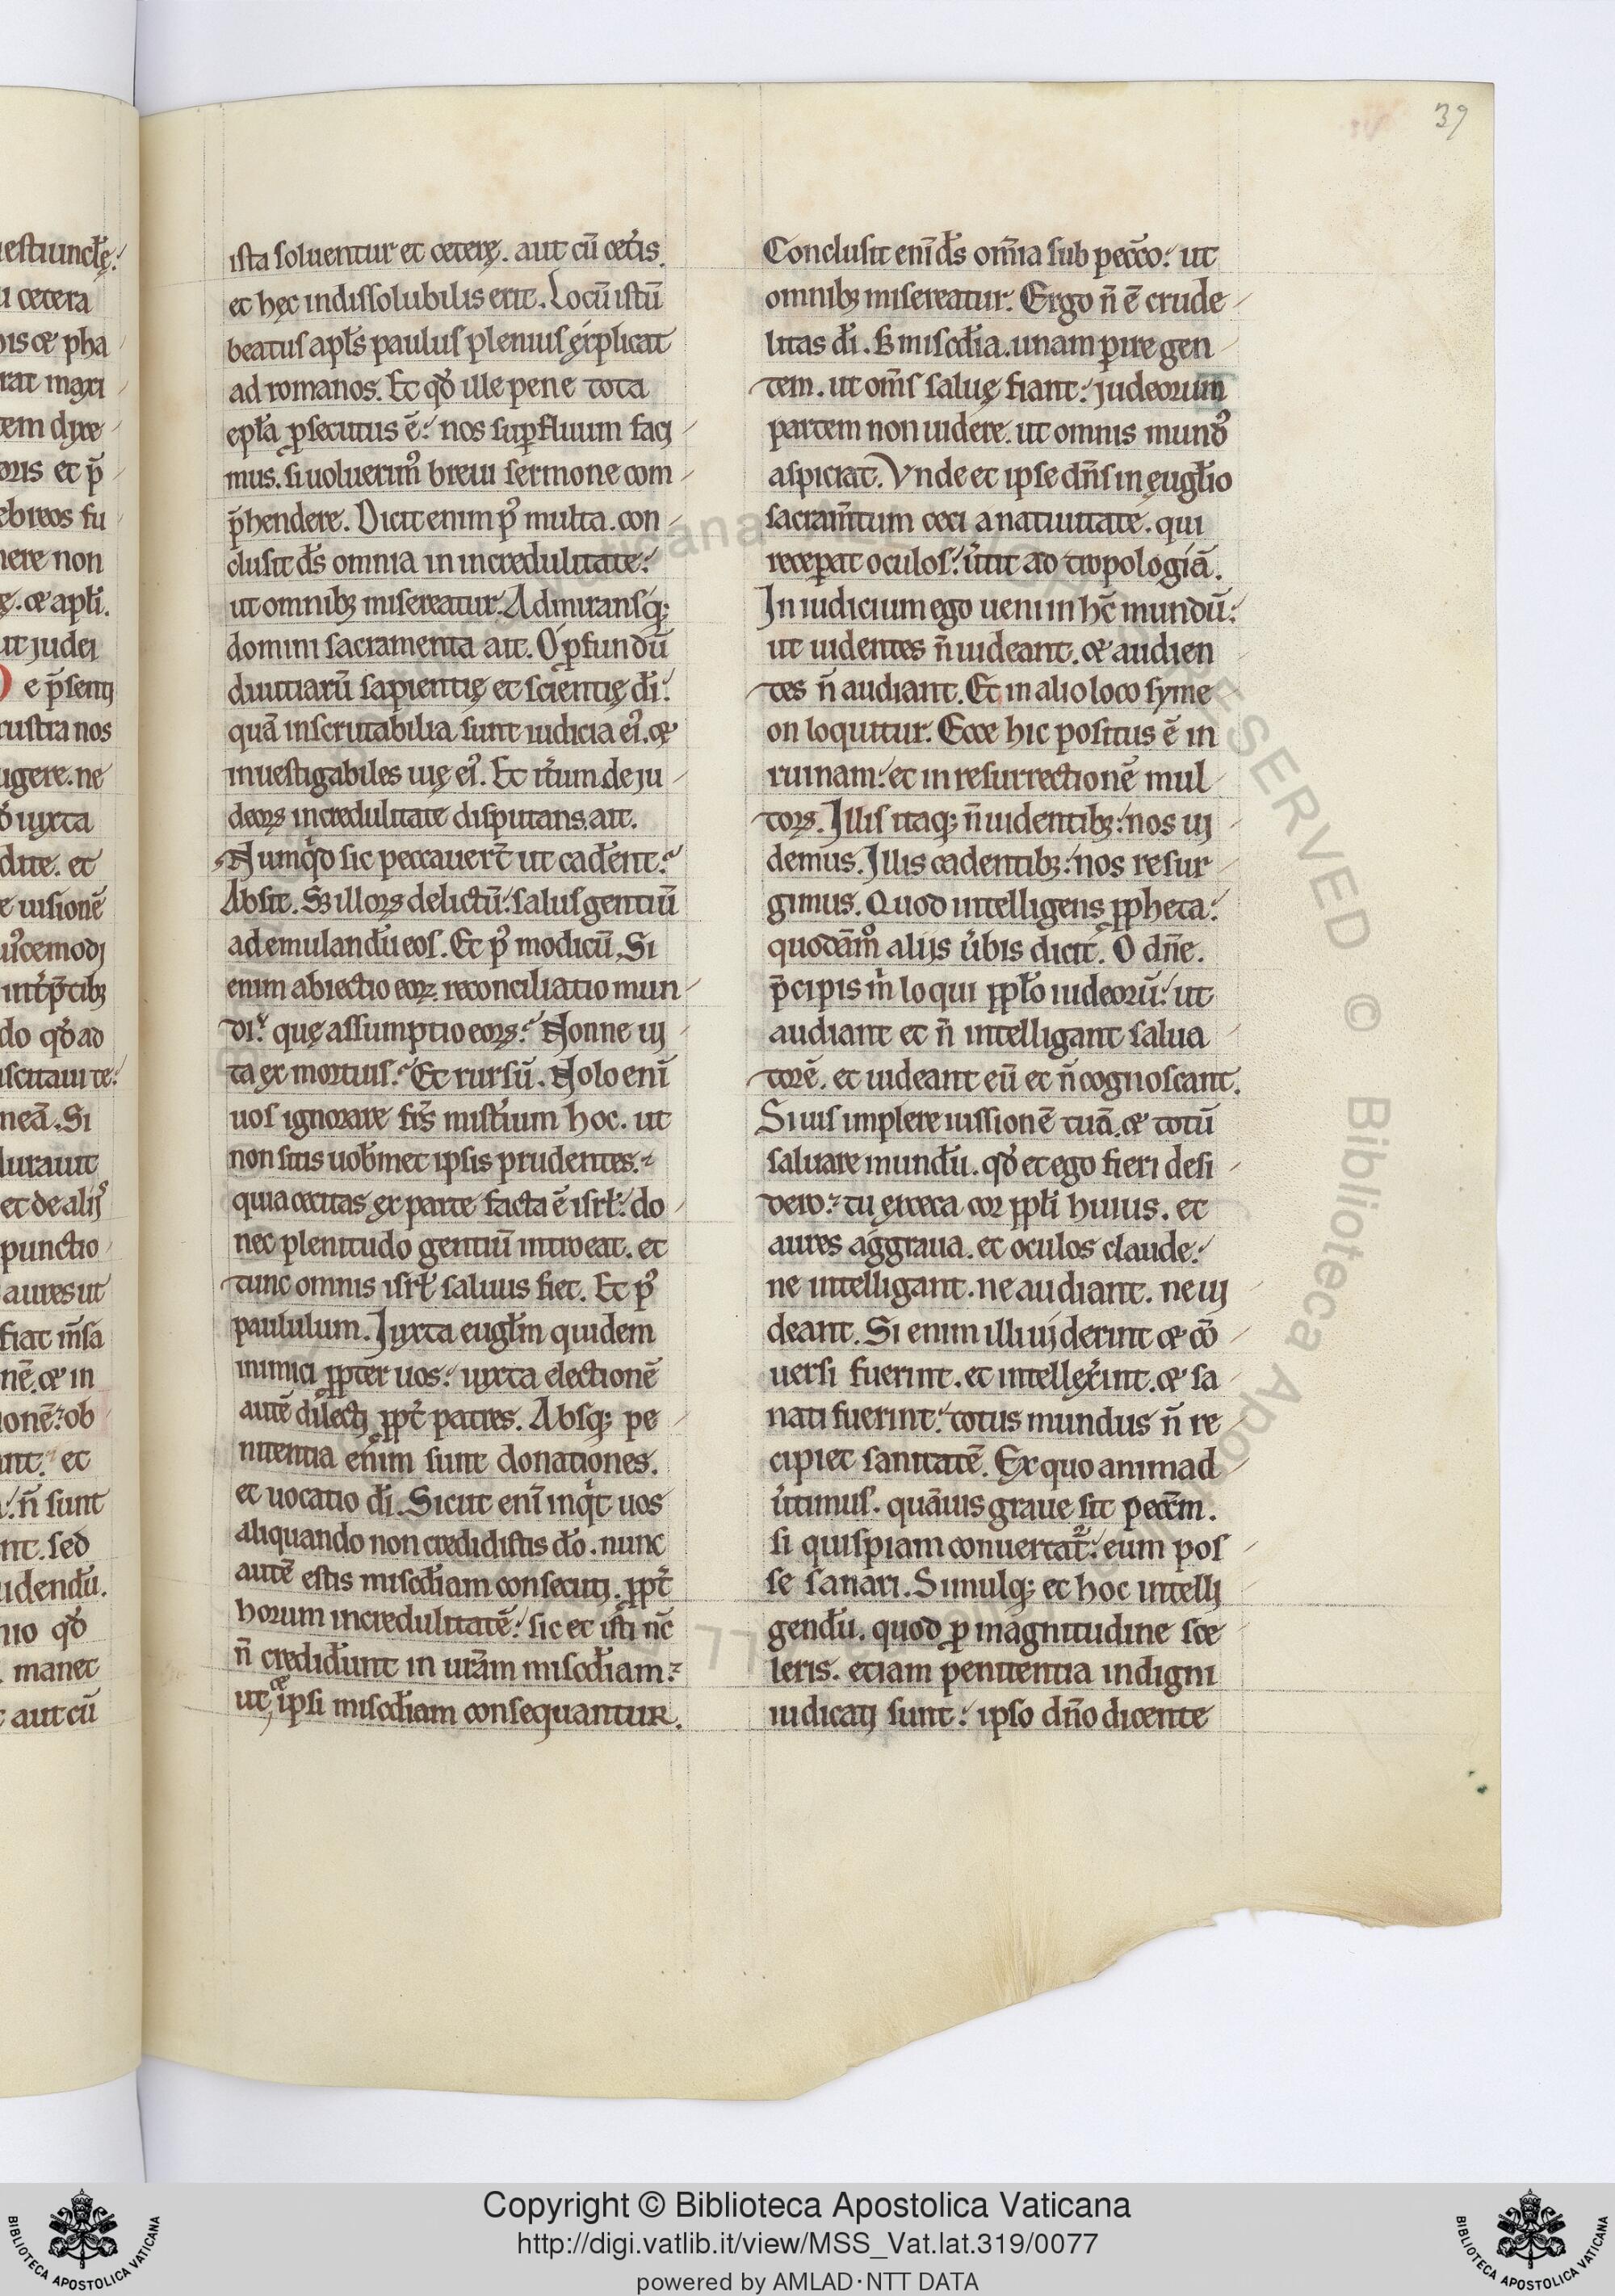 39
estiuncl̄ę:
u cetera
ois ⁊ pha
rat maxi
tem dixe
oris et p̄
ebreos fu
nere non
ę. ⁊ apl̄i.
ut judei
e p̄senti
rustra nos
igere. ne
iuxta
dite. et
e uisionē
do qđ ad
iscitaui te:
neā. Si
durauit
et de alijs
punctio
aures ut
fiat
nē. ⁊ in
ionē: ob
unt. et
: n̄ sunt
nt. sed
udendū.
nio qđ
manet
aut cū
ista soluentur et ceterę. aut cū cet̄is
et hęc indissolubilis erit. Locū istū
beatus apl̄s paulus plenius explicat
ad romanos. Et qđ ille pene tota
epl̄a ꝑsecutus ē: nos suꝑfluum faci
mus. si uoluerimꝰ breui sermone com
p̄hendere. Dicit enim pꝰ multa. con
clusit ds̄ omnia in incredulitate:
ut omnibꝫ misereatur. Admiransqꝫ
domini sacramenta ait. O ꝓfundū
diuitiarū sapientię et scientię dī:
quā inscrutabilia sunt iudicia eiꝰ. ⁊
inuestigabiles uię eiꝰ. Et it̄um de ju
deoꝝ incredulitate disputans. ait.
Numqd sic peccauer̄t ut cadent:
Absit. Sꝫ illoꝝ delictū: salus gentiū
ad emulandū eos. Et pꝰ modicū. Si
enim abiectio eoꝝ. reconciliatio mun
di: quę assumptio eoꝝ: Nonne ui
ta ex mortuis: Et rursū. Nolo enī
uos ignorare fr̄s mist̄ium hoc. ut
non sitis uobmet ipsis prudentes.
quia cecitas ex parte facta ē isrł: do
nec plenitudo gentiū introeat. et
tunc omnis isrł saluus fiet. Et pꝰ
paululum. Juxta eugłm quidem
inimici ꝓpter uos: iuxta electionē
autē dilecti ꝓpt̄ patres. Absqꝫ pe
nitentia enim sunt donationes.
et uocatio dī. Sicut enī inqt uos
aliquando non credidistis dō. nunc
autē estis misc̄diam consecuti. ꝓpt̄
horum incredulitatē: sic et isti nc̄
n̄ credidēunt in ur̄am misc̄diam:
ut ⁊ ipsi misc̄diam consequantur.
Conclusit enī ds̄ om̄ia sub pecc̄o: ut
omnibꝫ misereatur. Ergo n̄ ē crude
litas dī. sꝫ misc̄dia. unam ꝑire gen
tem. ut om̄s saluę fiant: judeorum
partem non uidere. ut omnis mundꝰ
aspiciat. Vnde et ipse dn̄s in eugłio
sacram̄tum ceci a natiuitate. qui
receꝑat oculos: ūtit ad tropologiā.
In iudicium ego ueni in hc̄ mundū:
ut uidentes n̄ uideant. ⁊ audien
tes n̄ audiant. Et in alio loco syme
on loquitur. Ecce hic positus ē in
ruinam: et in resurrectionē mul
toꝝ. Illis itaqꝫ n̄ uidentibꝫ: nos ui
demus. Illis cadentibꝫ: nos resur
gimus. Quod intelligens ꝓpheta:
quodām̊ alijs ūbis dicit. O dn̄e.
p̄cipis m̄ loqui ppło iudeorū: ut
audiant et n̄ intelligant salua
torē. et uideant eū et n̄ cognoscant.
Si uis implere iussionē tuā. ⁊ totū
saluare mundū. qđ et ego fieri desi
dero: tu exceca cor ppłi huius. et
aures aggraua. et oculos claude:
ne intelligant. ne audiant. ne ui
deant. Si enim illi uiderint ⁊ cō
uersi fuerint. et intellex̄int. ⁊ sa
nati fuerint: totus mundus n̄ re
cipiet sanitatē. Ex quo animad
ūtimus. quāuis graue sit pecc̄m.
si quispiam conuertat̄: eum pos
se sanari. Simulqꝫ et hoc intelli
gendū. quod ꝓ magnitudine sce
leris. etiam penitentia indigni
iudicati sunt: ipso dn̄o dicente
Copyright © Biblioteca Apostolica Vaticana
http://digi.vatlib.it/view/MSS_Vat.lat.319/0077
powered by AMLAD·NTT DATA
BIBLIOTECA APOSTOLICA VATICANA
BIBLIOTECA APOSTOLICA VATICANA